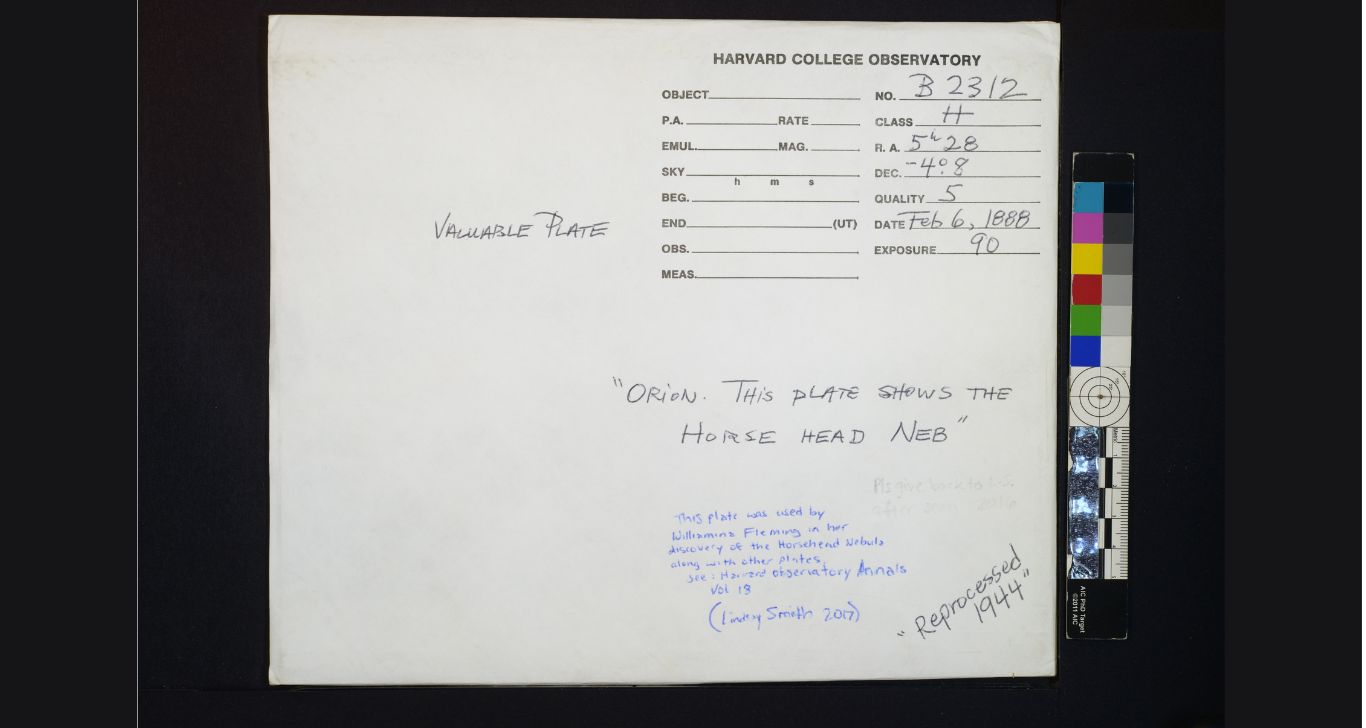 HARVARD COLLEGE OBSERVATORY
OBJECT
NO. B 2312
P.A. RATE
CLASS H
EMUL. MAG.
R. A. 5h 28
SKY
DEC. -4°.8
h m s
BEG.
QUALITY 5
END (UT)
DATE Feb 6, 1888
OBS.
EXPOSURE 90
MEAS.
VALUABLE PLATE
"ORION. THIS PLATE SHOWS THE
HORSE HEAD NEB"
Pls give back to
after 2016
This plate was used by
Williamina Fleming in her
discovery of the Horsehead Nebula
along with other plates.
see: Harvard Observatory Annals
Vol 18
(Lindsay Smith 2017)
"Reprocessed
1944"
AIC PhD Target
©2011 AIC